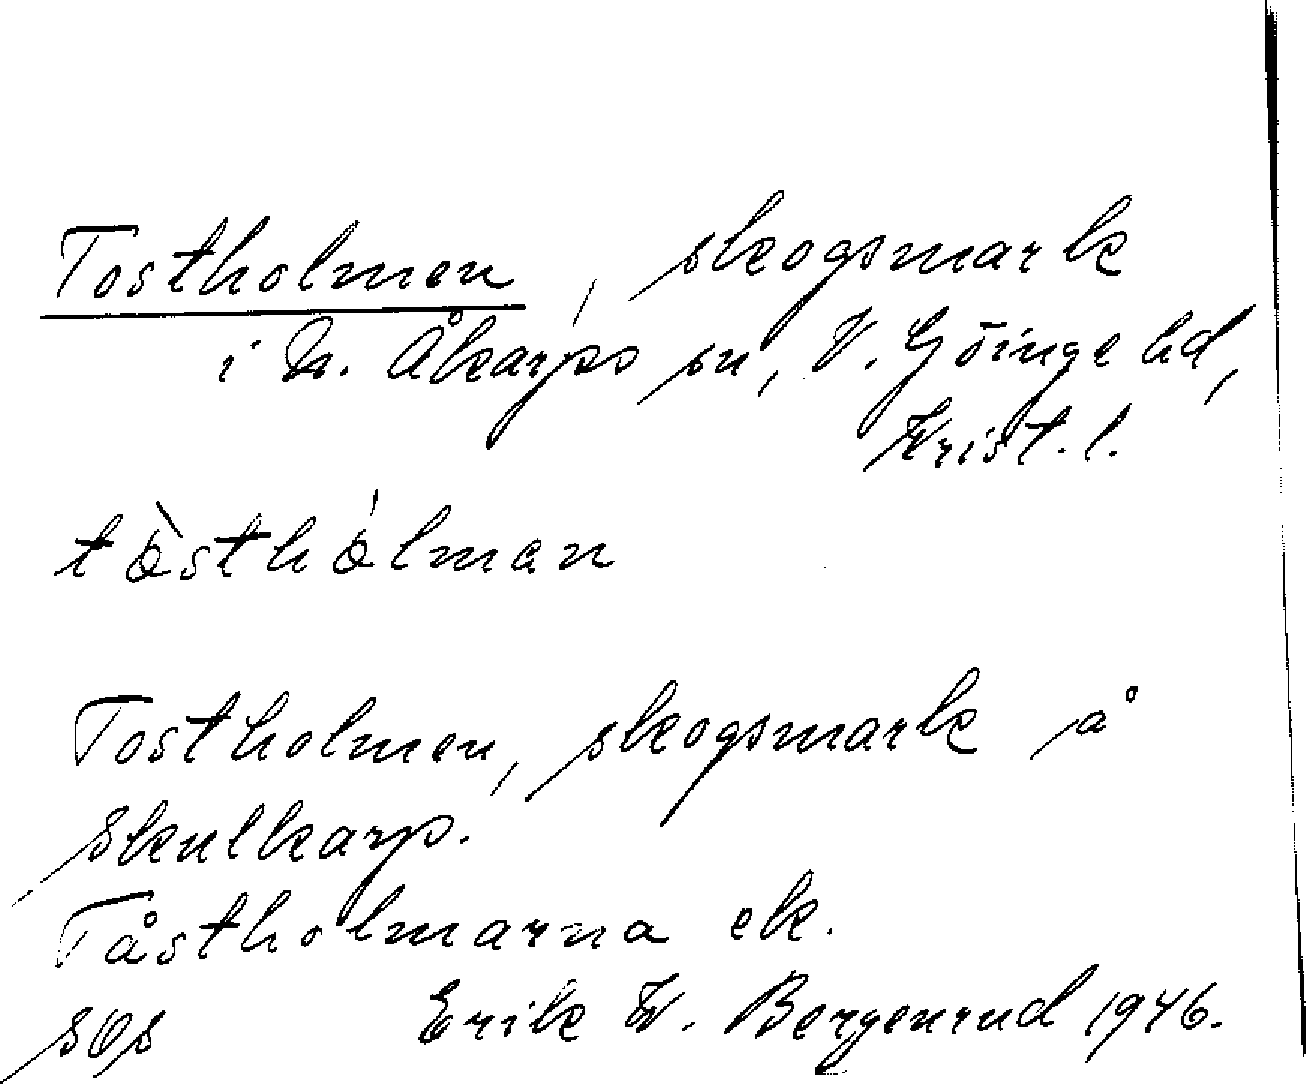 Tostholmen, skogsmark
i N. Åkarps sn, V. Göinge hd,
Krist. l.
tòsthólman
Tostholmen, skogsmark å
Skulkarp.
Tåstholmarna ek.
Erik W. Bergenrud 1946.